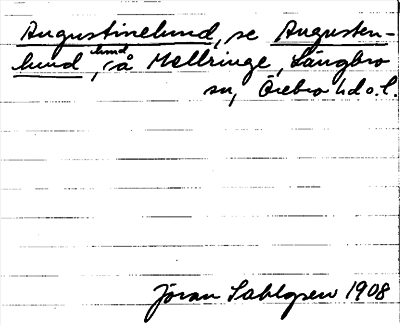 Augustinelund, se Augusten-
lund, på Mellringe, Längbro
sn, Örebro hd o. l.
Jöran Sahlgren 1908